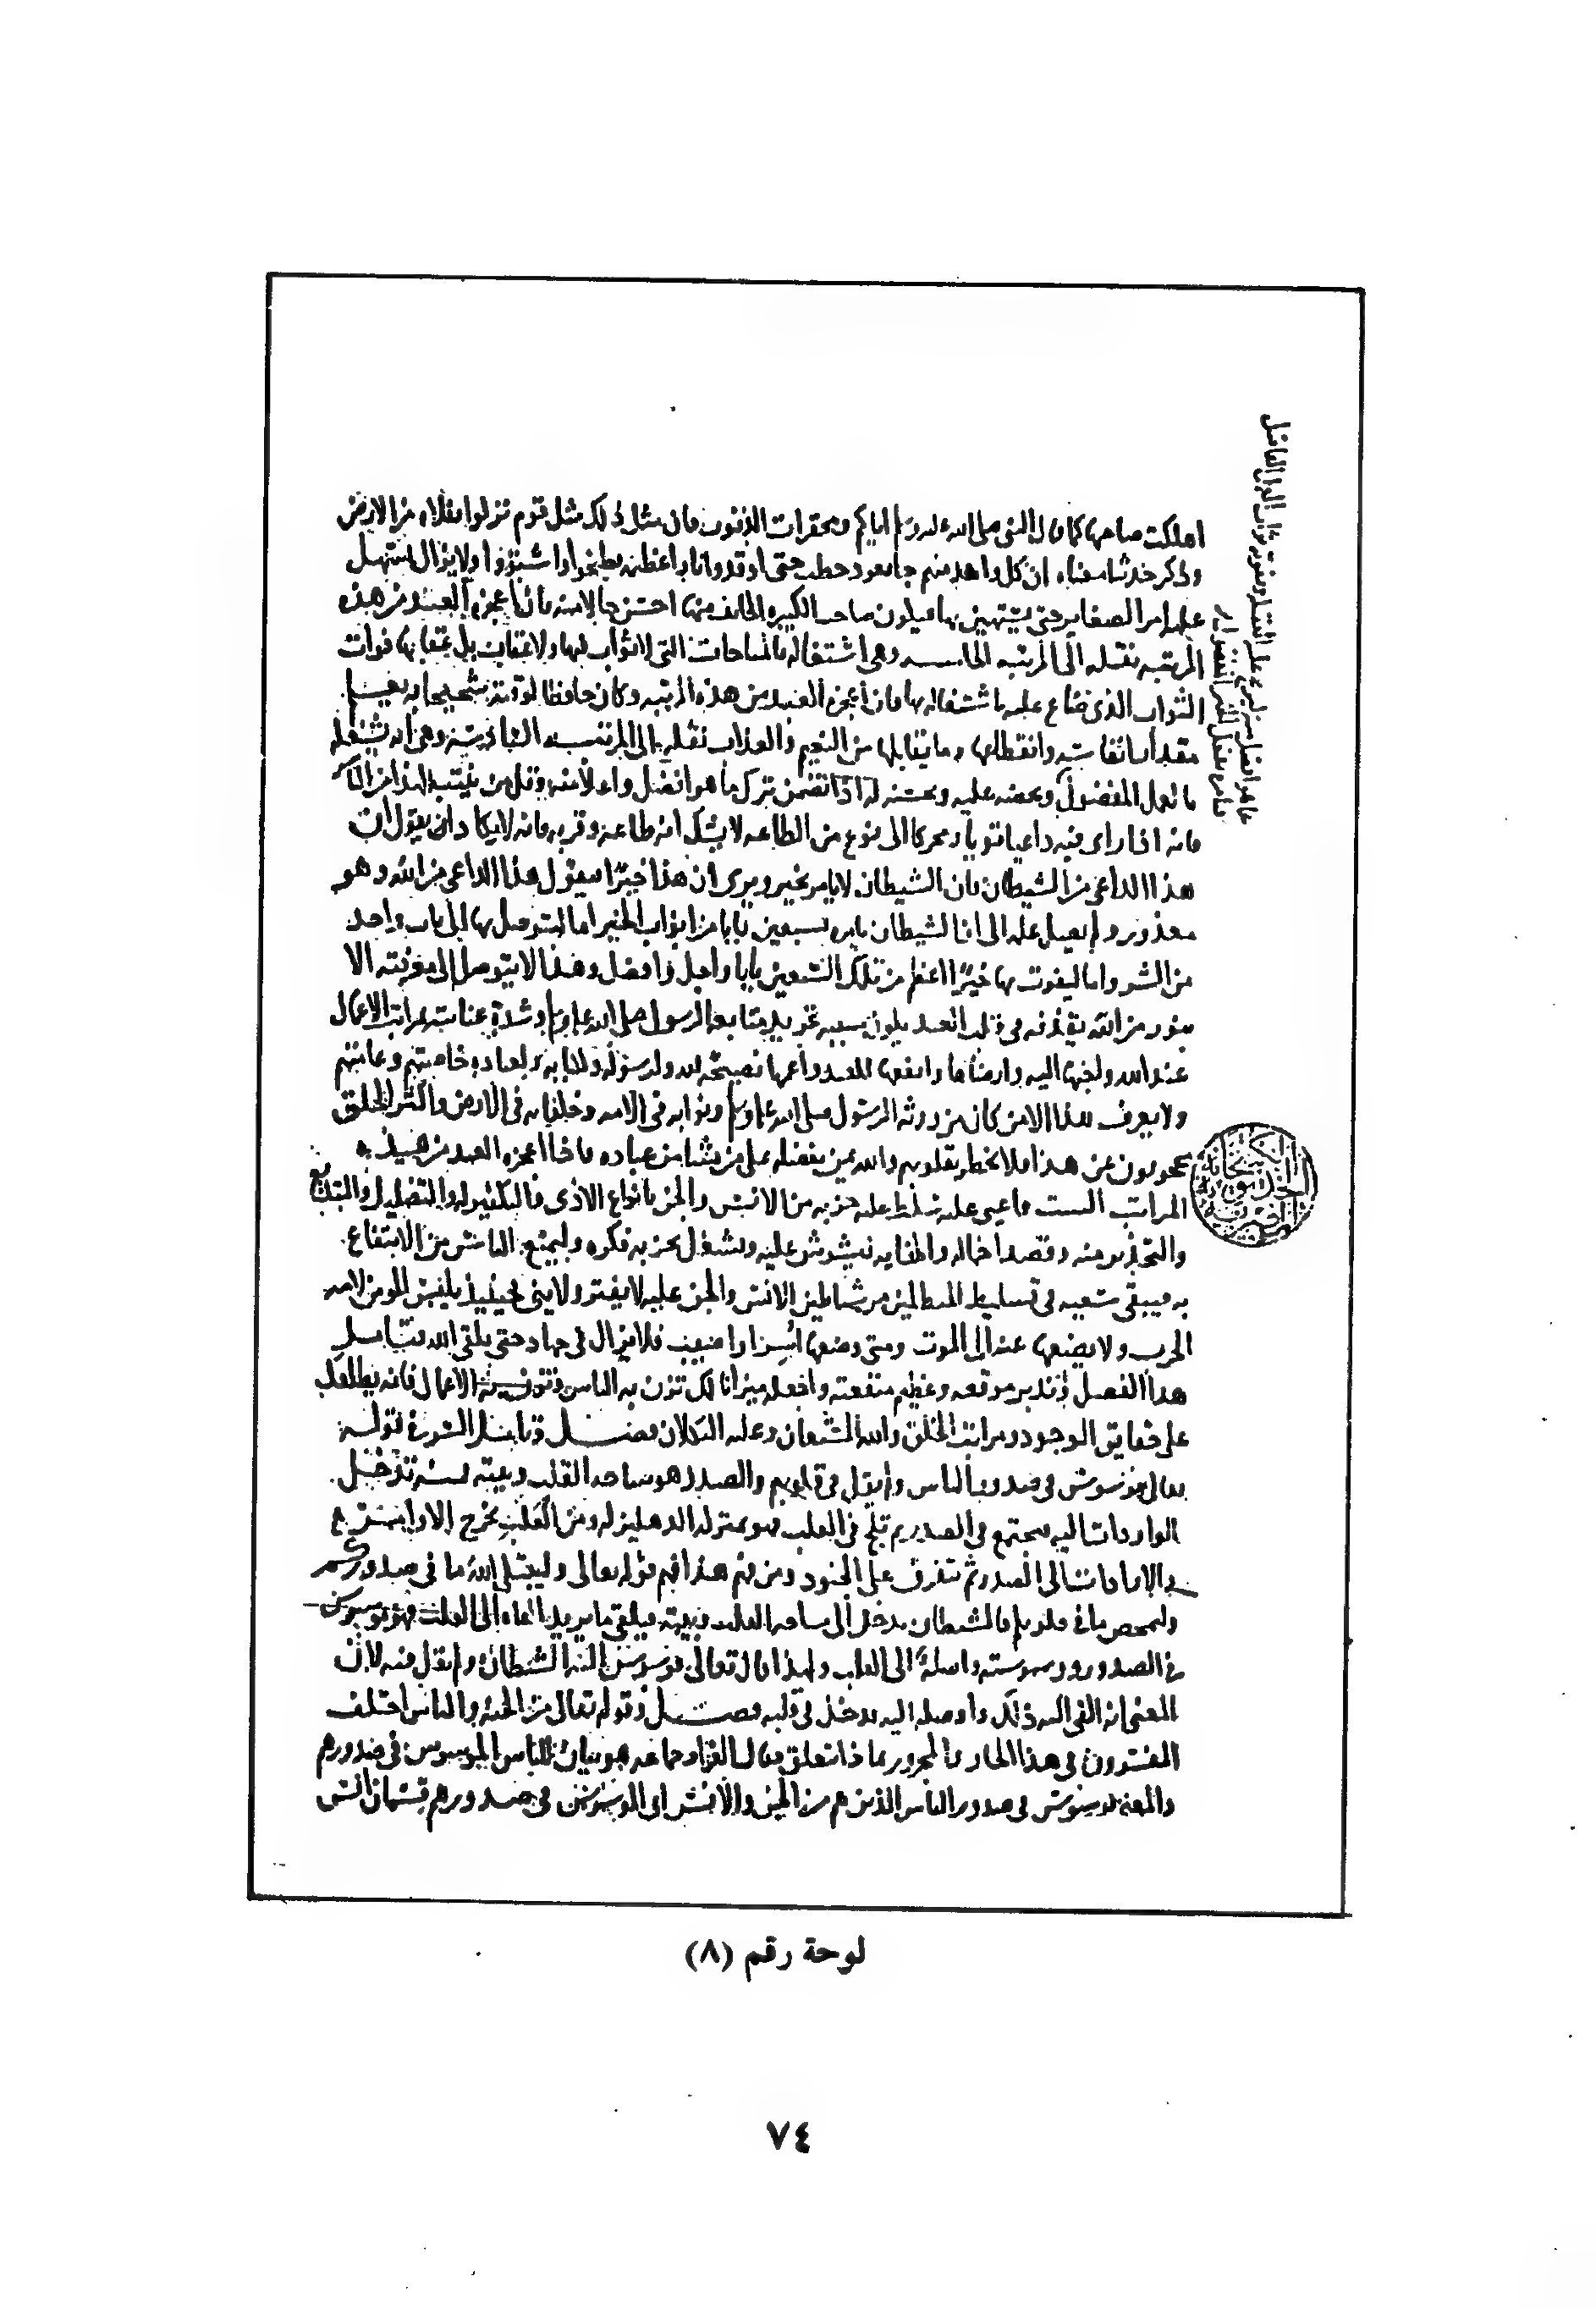 اهلكت صاحبها كما قال النبي صلى الله عليه وسلم اياكم ومحقرات الذنوب فان مثل ذلك مثل قوم نزلوا بفلاه من الارض
وذكر حديثا معناه ان كل واحد منهم جا بعود حطب حتى اوقدوا نارا عظيمه فطبخوا واشتووا ولا يزال يستهل
عليه امر الصغاير حتى يستهين بها فيكون صاحب الكبيره الخايف منها احسن حالا منه فان اعجزه العبد من هذه
المرتبه نقله الى المرتبه الخامسه وهي اشتغاله بالمباحات التي لا ثواب فيها ولا عقاب بل عقابها فوات
الثواب الذي ضاع عليه باشتغاله بها فان اعجزه العبد من هذه المرتبه وكان حافظا لوقته شحيحا به يعلم
مقدار انفاسه وانقطاعها وما يقابلها من النعيم والعذاب نقله الى المرتبه السادسه وهي ان يشغله
بالعمل المفضول
فانه اذا راى فيه داعيا قويا ومحركا الى نوع من الطاعه لا يشك انه طاعه وقربه فانه لا يكاد ان يقول ان
هذا الداعي من الشيطان فان الشيطان لا يامر بخير ويرى ان هذا خيرا فيقول هذا الداعي من الله وهو
معذور ولم يصل علمه الى ان الشيطان يامره بسبعين بابا من ابواب الخير اما ليتوصل بها الى باب واحد
من الشر واما ليفوت بها خيرا اعظم من تلك السبعين بابا واجل وافضل وهذا لا يتوصل الى معرفته الا
بنور من الله يقذفه في قلب العبد يكون سببه تجريد متابعه الرسول صلى الله عليه وسلم وشدة عنايته بمراتب الاعمال
عند الله واحبها اليه وارضاها له وانفعها للعبد واعمها نصيحة لله ولرسوله ولكتابه ولعباده خاصتهم وعامتهم
ولا يعرف هذا الا من كان من ورثه الرسول صلى الله عليه وسلم ونوابه في الامه وخلفايه في الارض واكثر الخلق
محجوبون عن هذا فلا يخطر بقلوبهم والله يمن بفضله على من يشا من عباده فاذا اعجزه العبد من هذه
المراتب الست واعيى عليه سلط عليه حزبه من الانس والجن بانواع الاذى والتكفير له والتضليل والتبديع
والتحذير منه وقصد اخماله واطفايه ليشوش عليه ويشغل بحربه فكره وليمنع الناس من الانتفاع
به فيبقى سعيه في تسليط المبطلين من شياطين الانس والجن عليه لا يفتر ولا يني فحينيذ يلبس المومن لامه
الحرب ولا يضعها عنه الى الموت ومتى وضعها اسر او اصيب فلا يزال في جهاد حتى يلقى الله فتامل
هذا الفصل وتدبر موقعه وعظيم منفعته واجعله ميزانا لك تزن به الناس وتزن به الاعمال فانه يطلعك
على حقايق الوجود ومراتب الخلق والله المستعان وعليه التكلان فصل وتامل السر في قوله
تعالى يوسوس في صدور الناس ولم يقل في قلوبهم والصدر هو ساحه القلب وبيته فمنه تدخل
الواردات اليه فتجتمع في الصدر ثم تلج في القلب فهو بمنزله الدهليز له ومن القلب تخرج الاوامر
والارادات الى الصدر ثم تتفرق على الجنود ومن فهم هذا فهم قوله تعالى وليبتلي الله ما في صدوركم
وليمحص ما في قلوبكم فالشيطان يدخل الى ساحه القلب وبيته فيلقي ما يريد القاه الى القلب فهو موسوس
في الصدور ووسوسته واصلة الى القلب ولهذا قال تعالى فوسوس اليه الشيطان ولم يقل فيه لان
المعنى انه القى اليه ذلك واوصله اليه فدخل في قلبه فصل وقوله تعالى من الجنه والناس اختلف
المفسرون في هذا الجار والمجرور بماذا تتعلق فقال الفراء وجماعه هو بيان للناس الموسوس في صدورهم
والمعنى يوسوس في صدور الناس الذين هم من الجن والانس اي الموسوس في صدورهم قسمان انس
لوحة رقم (٨)
٧٤